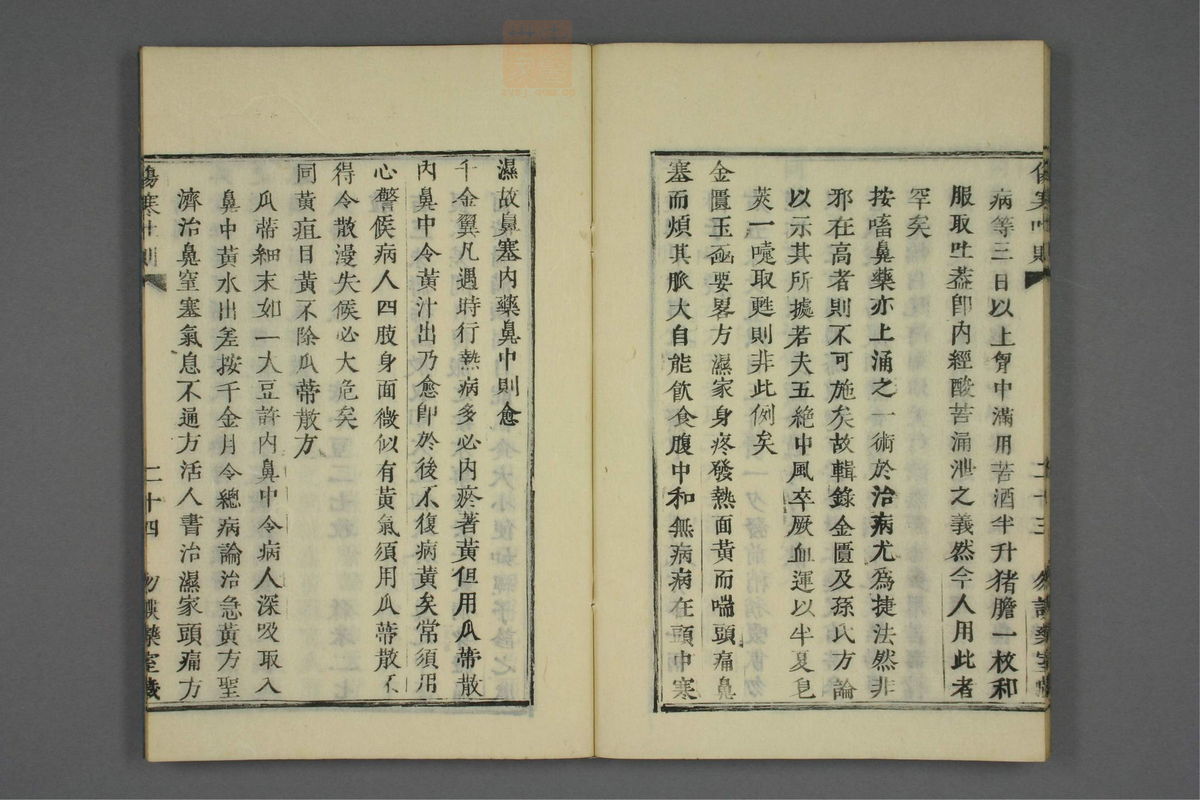 病等三日以上胷中滿用苦酒半升猪膽一枚和
服取吐葢卽内經酸苦涌泄之義然今人用此者
罕矣
按㗜鼻藥亦上涌之一術於治病尤爲捷法然非
邪在高者則不可施矣故輯錄金匱及孫氏方論
以示其所據若夫五絶中風卒厥血運以半夏皂
莢一嚏取甦則非此例矣
金匱玉函要畧方濕家身疼發熱面黃而喘頭痛鼻
塞而煩其脈大自能飮食腹中和無病病在頭中寒
二十三
濕故鼻塞内藥鼻中則愈
千金翼凡遇時行熱病多必内瘀著黃但用瓜蒂散
内鼻中令黃汁出乃愈卽於後不復病黃矣常須用
心警候病人四肢身面微似有黃氣須用瓜蒂散不
得令散漫失候必大危矣
同黃疸目黃不除瓜蒂散方
瓜蒂細末如一大豆許内鼻中令病人深吸取入
鼻中黃水出差按千金月令總病論治急黃方聖
濟治鼻窒塞氣息不通方活人書治濕家頭痛方
傷寒
二十四
藥室藏